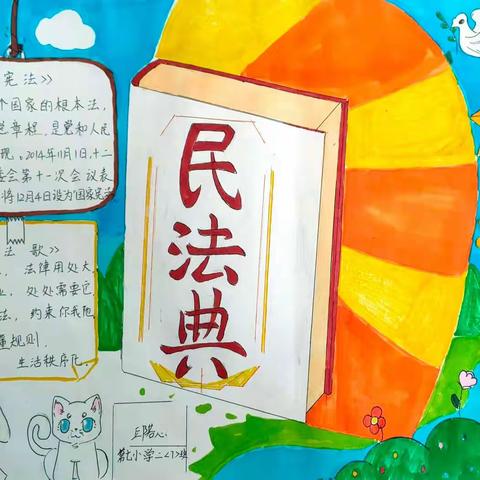 宪法>>
个国家的根本法,
总章程,是党和人民
现。2014年11月1日,十二
委会第十一次会议表
将12月4日设为"国家宪法
法歌>>
,法律用处大,
业,处处需要它,
法,约束你我他
规则,
生活秩序化
民法典
第七小学二<1>班